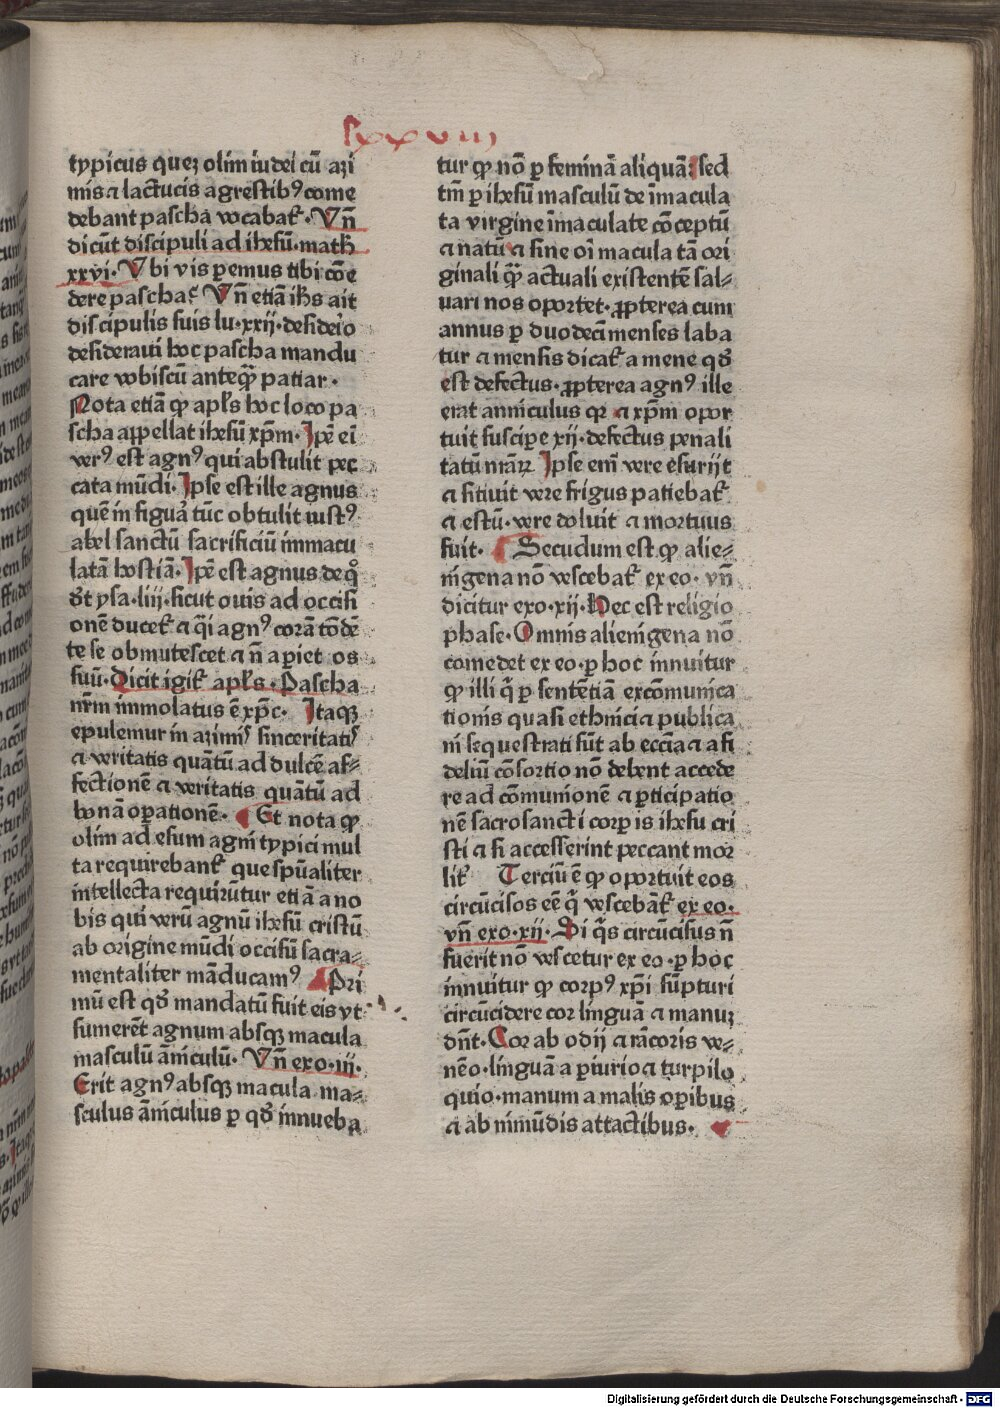 lxxviii
typicus quez olim iudei cū azi
mis ⁊ lactucis agrestibꝰ come
debant pascha vocabat᷑. Vn̄
dicūt discipuli ad ihesū. math
xxvi. Vbi vis paremus tibi cōe
dere pascha? Vn̄ etiā ihs ait
discipulis suis lu. xxij. desiderio
desideraui hoc pascha mandu
care vobiscū anteꝙ̄ patiar.
Nota etiā ꝙ apl̄s hoc loco pa
scha appellat ihesū xp̄m. Ip̄e ei
verꝰ est agnꝰ qui abstulit pec
cata mūdi. Ipse est ille agnus
quē in figura tūc obtulit iustꝰ
abel sanctū sacrificiū immacu
latā hostiā. Ip̄e est agnus de qͦ
dt ysa. liij. sicut ouis ad occisi
onē ducet᷑ ⁊ qͣi agnꝰ corā tōdē
te se obmutescet ⁊ n̄ aꝑiet os
suū. Dicit igit᷑ apl̄s. Pascha
nr̄m immolatus ē xp̄c. Itaqꝫ
epulemur in azimis sinceritatis
⁊ veritatis quātū ad dulcē af⸗
fectionē ⁊ veritatis quātū ad
bonā oꝑationē. Et nota ꝙ
olim ad esum agni typici mul
ta requirebant᷑ que spūaliter
intellecta requirūtur etiā a no
bis qui verū agnū ihesū cristū
ab origine mūdi occisū sacra⸗
mentaliter māducamꝰ Pri
mū est qd mandatū fuit eis vt
sumerēt agnum absqꝫ macula
masculū āniculū. Vn̄ exo. iij.
Erit agnꝰ absqꝫ macula ma⸗
sculus āniculus ꝑ qd innueba
tur ꝙ nō ꝑ feminā aliquaꝫ sed
tm̄ ꝑ ihesū masculū de īmacula
ta virgine īmaculate cōceptū
⁊ natū ⁊ sine oī macula tā ori
ginali ꝙ̄ actuali existentē sal⸗
uari nos oportet. ꝓpterea cum
annus ꝑ duodecī menses laba
tur ⁊ mensis dicat᷑ a mene qd
est defectus. ꝓpterea agnꝰ ille
erat anniculus qꝛ ⁊ xp̄m opor
tuit suscipe xij. defectus penali
tatū nr̄aꝝ Ipse em̄ vere esurijt
⁊ sitiuit vere frigus patiebat᷑
⁊ estū. vere doluit ⁊ mortuus
fuit. Secūdum est ꝙ alie⸗
nigena nō vescebat᷑ ex eo. vn̄
dicitur exo. xij. Hec est religio
phase. Omnis alienigena nō
comedet ex eo. ꝑ hoc innuitur
ꝙ illi q̄ ꝑ sentētiā excōmunica
tionis quasi ethnici ⁊ publica
ni sequestrati sūt ab ecc̄ia ⁊ a fi
deliū cōsortio nō debent accede
re ad cōmunionē ⁊ ꝑticipatio
nē sacrosancti corꝑis ihesu cri
sti ⁊ si accesserint peccant mor
lit᷑ Terciū ē ꝙ oportuit eos
circūcisos eē q̄ vescebāt᷑ ex eo.
vn̄ exo. xij. Si qͥs circūcisus n̄
fuerit nō vescetur ex eo. ꝑ hoc
innuitur ꝙ corpꝰ xp̄i sūpturi
circūcidere cor linguā ⁊ manuꝫ
dn̄t. Cor ab odij ⁊ rācoris ve⸗
nēo. linguā a ꝑiurio ⁊ turpilo
quio. manum a malis oꝑibus
⁊ ab inmūdis attactibus.
Digitalisierung gefördert durch die Deutsche Forschungsgemeinschaft - DFG